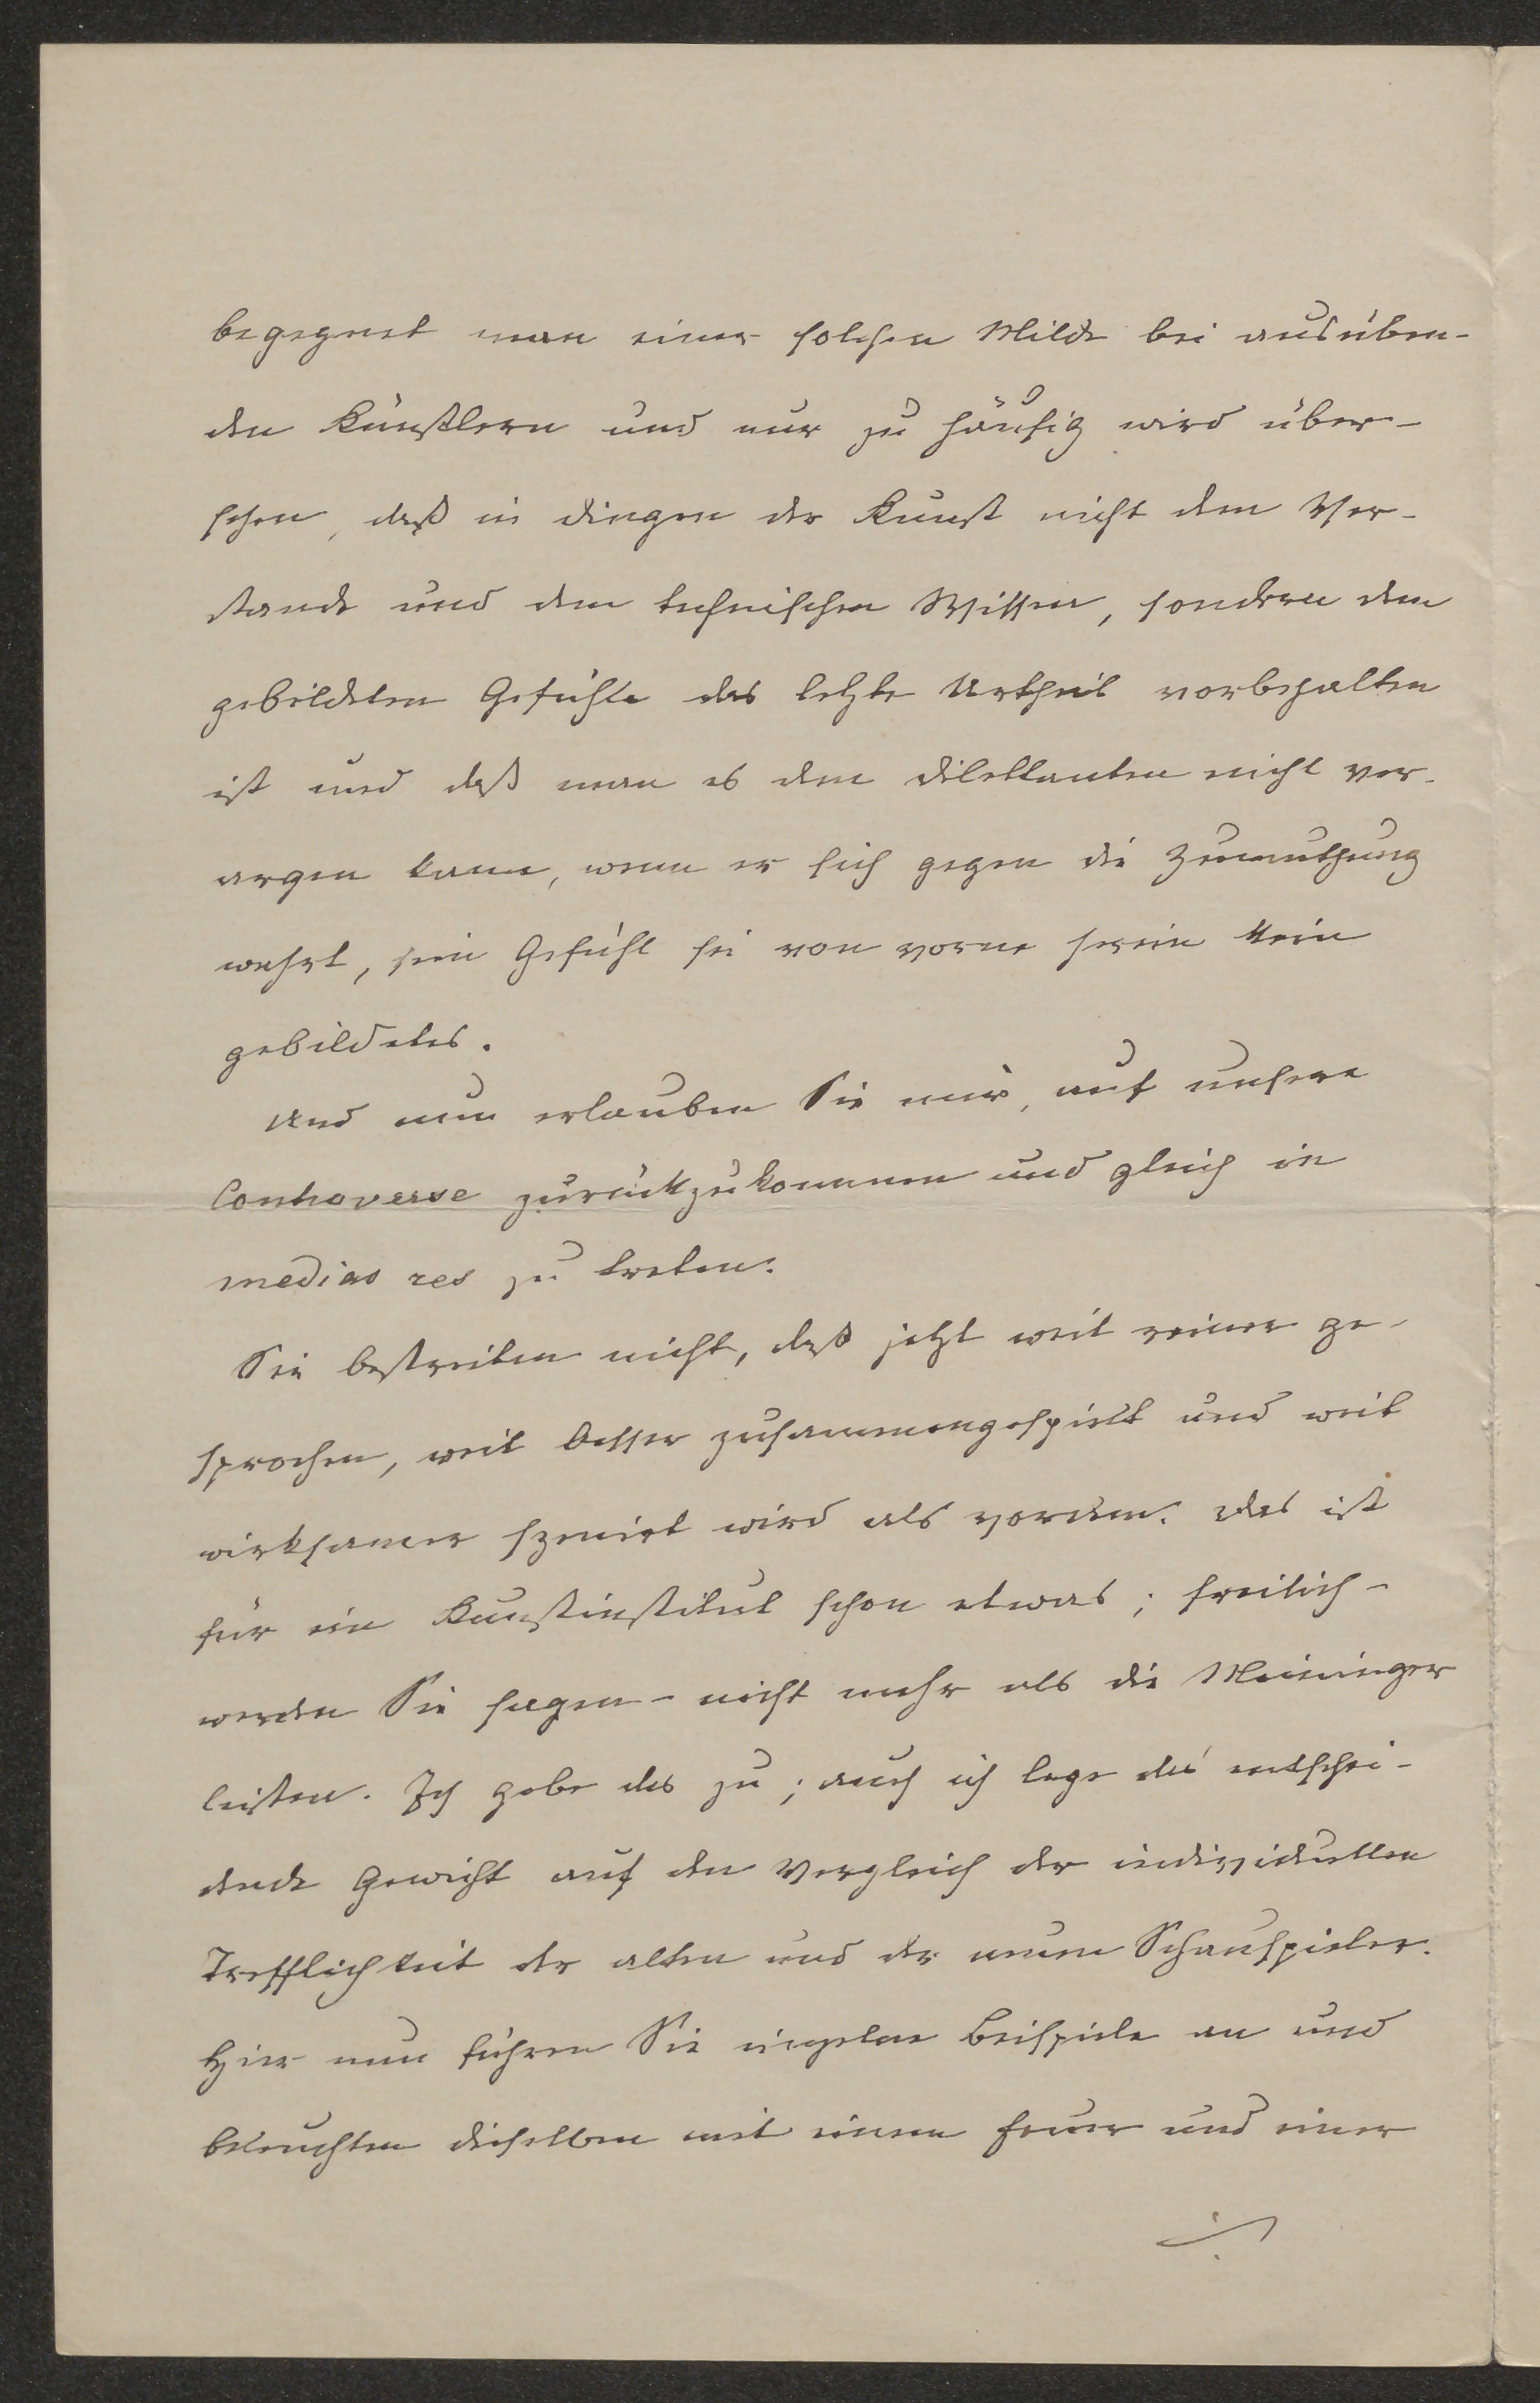 begegnet man einer solchen Milde bei ausüben-
den Künstlern und nur zu häufig wird über-
sehen, daß in Dingen der Kunst nicht dem Ver-
stande und dem technischen Wissen, sondern dem
gebildeten Gefühle das letzte Urtheil vorbehalten
ist und daß man es dem Dilettanten nicht ver-
argen kann, wenn er sich gegen die Zumuthung
wehrt, sein Gefühl sei von vorne herein kein
gebildetes.
Und nun erlauben Sie mir, auf unsere
Controverse zurückzukommen und gleich in
medias res zu treten.
Sie bestreiten nicht, daß jetzt weit reiner ge-
sprochen, weit besser zusammengespielt und weit
wirksamer szenirt wird als vordem. Das ist
für ein Kunstinstitut schon etwas; freilich -
werden Sie sagen - nicht mehr als die Meininger
leisten. Ich gebe das zu; auch ich lege das entschei-
dende Gewicht auf den Vergleich der individuellen
Trefflichkeit der alten und der neuen Schauspieler.
Hier nun führen Sie einzelne Beispiele an und
beleuchten dieselben mit einem Feuer und einer
./.